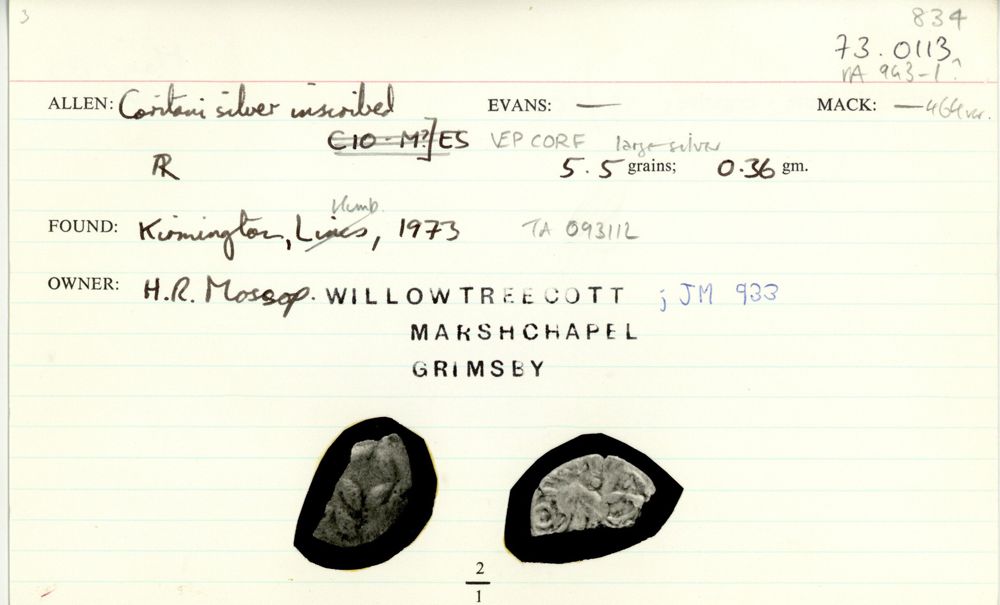 3
834
73.0113
VA 993-1?
ALLEN: Coritani silver inscribed EVANS: — MACK: — 464var.
CIO-M?]ES VEP CORF large silver
AR 5.5 grains; 0.36 gm.
Humb.
FOUND: Kirmington, Lincs, 1973 TA 093112
OWNER: H.R. Mossop. WILLOWTREECOTT ; JM 933
MARSHCHAPEL
GRIMSBY
2
1